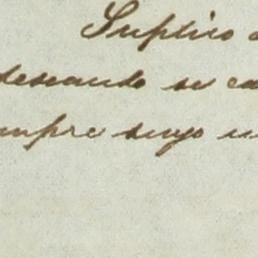 Suplico
deseando se
siempre suyo